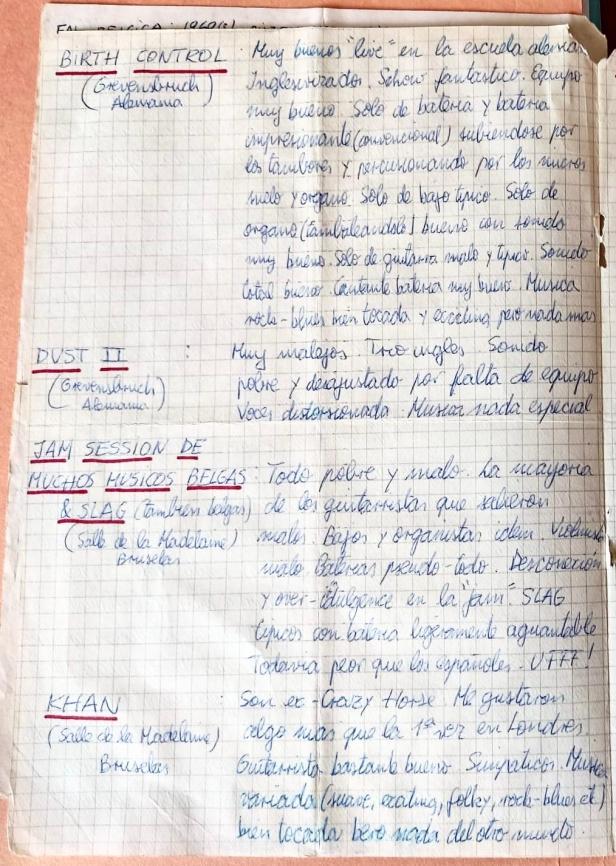 BIRTH CONTROL : Muy buenos "live" en la escuela alemana
(Grevensbruch) Inglesizados. Schow fantastico. Equipo
Alemania muy bueno. Solo de bateria y bateria
impresionante (convencional) subiendose por
los tambores y percusionando por los
suelo y organo. Solo de bajo tipico. Solo de
organo (tambaleandolo) bueno con sonido
muy bueno. Solo de guitarra malo y tipico. Sonido
total bueno. Cantante bateria muy bueno. Musica
rock-blues bien tocada y exciting pero nada mas
DUST II : Muy malejos. Trio ingles. Sonido
(Grevensbruch) pobre y desajustado por falta de equipo
Alemania Voces distorsionada. Musica nada especial
JAM SESSION DE
MUCHOS MUSICOS BELGAS : Todo pobre y malo. La mayoria
& SLAG (tambien belgas) de los guitarristas que salieron
(Salle de la Madelaine) malos. Bajos y organistas idem. Violinista
Bruselas malo. Baterias pseudo-todo. Desconexión
y over-indulgence en la "jam". SLAG
tipicos con bateria ligeramente aguantable
Todavia peor que los españoles. UFFF!
KHAN : Son ex-Crazy Horse. Me gustaron
(Salle de la Madelaine) algo mas que la 1ª vez en Londres.
Bruselas Guitarrista bastante bueno. Simpaticos. Musica
variada (suave, exciting, folky, rock-blues etc.)
bien tocada pero nada del otro mundo.